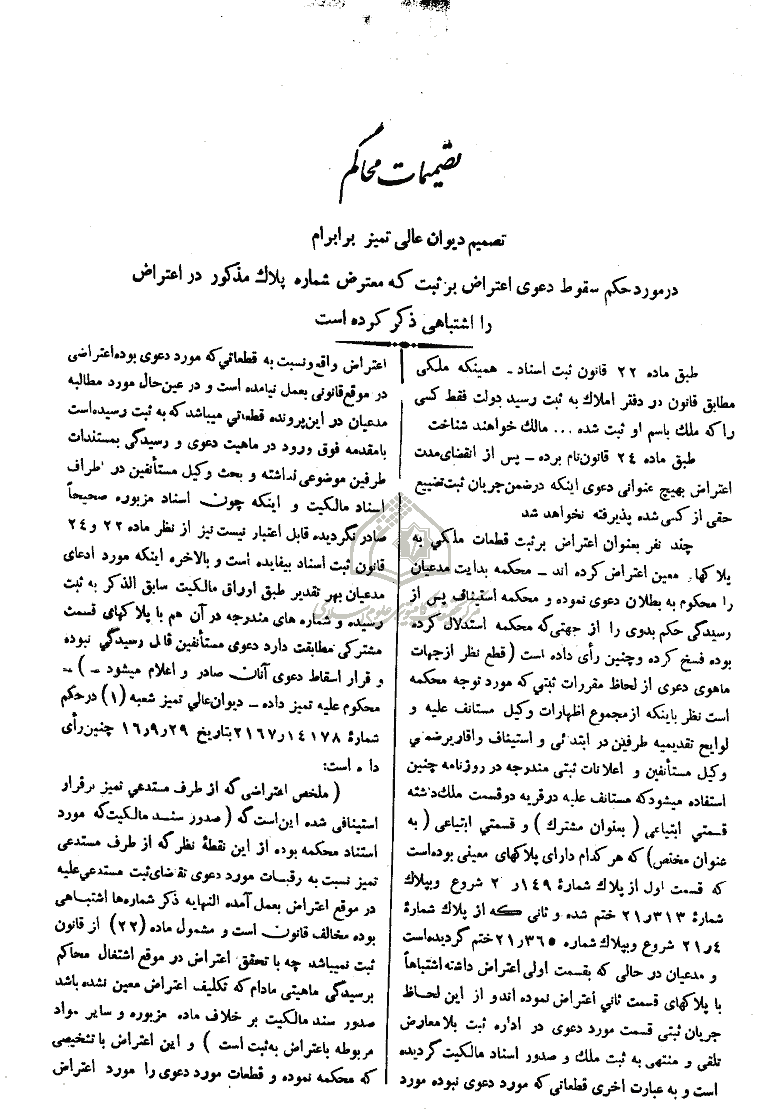 تصمیمات محاکم
تصمیم دیوان عالی تمیز برابرام
درمورد حکم سقوط دعوی اعتراض بر ثبت که معترض شماره پلاک مذکور در اعتراض
را اشتباهی ذکر کرده است
طبق ماده ۲۲ قانون ثبت اسناد ـ همینکه ملکی
مطابق قانون در دفتر املاک به ثبت رسید دولت فقط کسی
را که ملک باسم او ثبت شده ... مالک خواهند شناخت
طبق ماده ۲۴ قانون نام برده ـ پس از انقضای مدت
اعتراض بهیچ عنوانی دعوی اینکه درضمن جریان ثبت تضییع
حقی از کسی شده پذیرفته نخواهد شد
چند نفر بعنوان اعتراض برثبت قطعات ملکی به
پلاکهای معین اعتراض کرده اند ـ محکمه بدایت مدعیان
را محکوم به بطلان دعوی نموده و محکمه استیناف پس از
رسیدگی حکم بدوی را از جهتی که محکمه استدلال کرده
بوده فسخ کرده وچنین رأی داده است ( قطع نظر ازجهات
ماهوی دعوی از لحاظ مقررات ثبتی که مورد توجه محکمه
است نظر باینکه ازمجموع اظهارات وکیل مستانف علیه و
لوایح تقدیمیه طرفین در ابتدائی و استیناف واقاریرضمنی
وکیل مستأنفین و اعلانات ثبتی مندرجه در روزنامه چنین
استفاده میشودکه مستانف علیه درقریه دوقسمت ملک داشته
قسمتی ابتیاعی ( بعنوان مشترک ) و قسمتی ابتیاعی ( به
عنوان مختص) که هر کدام دارای پلاکهای معینی بوده است
که قسمت اول از پلاک شمارهٔ ۱۴۹ر ۲ شروع وبپلاک
شمارهٔ ۳۱۳ر۲۱ ختم شده و ثانی که از پلاک شمارهٔ
۴ر۲۱ شروع وبپلاک شماره ۳۶۵ر۲۱ ختم گردیده است
و مدعیان در حالی که بقسمت اولی اعتراض داشته اشتباهاً
با پلاکهای قسمت ثانی اعتراض نموده اندو از این لحاظ
جریان ثبتی قسمت مورد دعوی در اداره ثبت بلامعارض
تلقی و منتهی به ثبت ملک و صدور اسناد مالکیت گردیده
است و به عبارت اخری قطعاتی که مورد دعوی نبوده مورد
اعتراض واقع ونسبت به قطعاتی که مورد دعوی بوده اعتراضی
در موقع قانونی بعمل نیامده است و در عین حال مورد مطالبه
مدعیان در این پرونده قطعه‌ئی میباشد که به ثبت رسیده است
بامقدمه فوق ورود در ماهیت دعوی و رسیدگی بمستندات
طرفین موضوعی نداشته و بحث وکیل مستأنفین در اطراف
اسناد مالکیت و اینکه چون اسناد مزبوره صحیحاً
صادر نگردیده قابل اعتبار نیست نیز از نظر ماده ۲۲ و ۲۴
قانون ثبت اسناد بیفایده است و بالاخره اینکه مورد ادعای
مدعیان بهر تقدیر طبق اوراق مالکیت سابق الذکر به ثبت
رسیده و شماره های مندرجه در آن هم با پلاکهای قسمت
مشترکی مطابقت دارد دعوی مستأنفین قابل رسیدگی نبوده
و قرار اسقاط دعوی آنان صادر و اعلام میشود ـ ) ـ
محکوم علیه تمیز داده ـ دیوان عالی تمیز شعبه (۱) درحکم
شمارهٔ ۱۴۱۷۸ر۲۱۶۷ بتاریخ ۲۹ر۹ر۱۶ چنین رأی
داده است:
( ملخص اعتراضی که از طرف مستدعی تمیز برقرار
استینافی شده این است که ( صدور سند مالکیت که مورد
استناد محکمه بوده از این نقطهٔ نظر که از طرف مستدعی
تمیز نسبت به رقبات مورد دعوی تقاضای ثبت مستدعی علیه
در موقع اعتراض بعمل آمده النهایه ذکر شماره‌ها اشتباهی
بوده مخالف قانون است و مشمول ماده (۲۲) از قانون
ثبت نمیباشد چه با تحقق اعتراض در موقع اشتغال محاکم
برسیدگی ماهیتی مادام که تکلیف اعتراض معین نشده باشد
صدور سند مالکیت بر خلاف ماده مزبوره و سایر مواد
مربوطه باعتراض به ثبت است ) و این اعتراض با تشخیصی
که محکمه نموده و قطعات مورد دعوی را مورد اعتراض